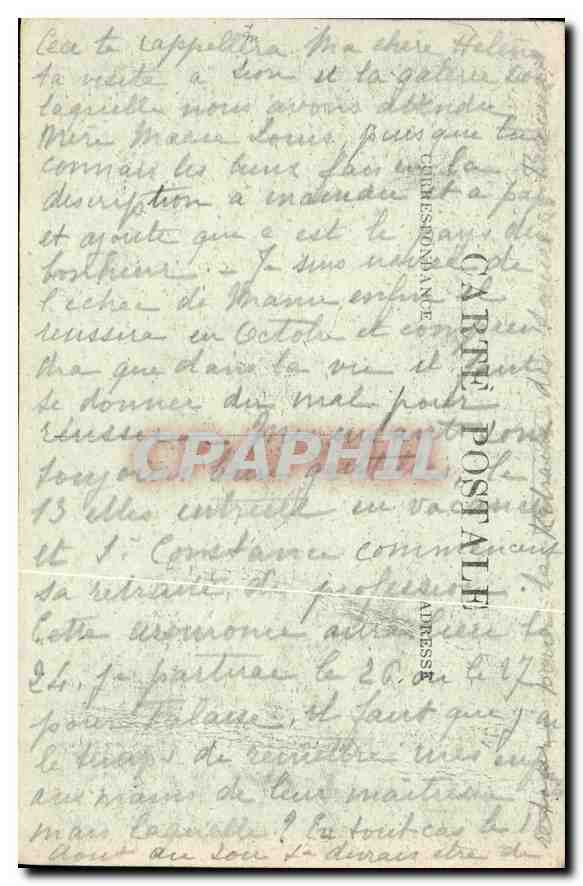 Ceci te rappellera Ma chère Helène
ta visite à Lion et la galerie sous
laquelle nous avons attendu
Mère Marie Louis, puisque tu
connais les lieux fais en la
discription à maman et à papa
et ajoute que c est le pays du
bonheur. – Je suis navrée de
l'echec de Manu enfin il
reussira en Octobre et compren
dra que dans la vie il faut
se donner du mal pour
réussir. Mes enfants sont
toujours bien gentilles, le
13 elles entrent en vacances
et Sr Constance commencent
sa retraite de profession.
Cette cérémonie aura lieu le
24. Je partirai le 26 ou le 27
pour Falaise, il faut que j'ai
le temps de remettre mes
aux mains de leur maitresse
mais laquelle ? En tout cas le 1
Aout au soir je devrais etre de
retour pour la Retraite
CORRESPONDANCE
CARTE POSTALE
ADRESSE
CPAPHIL